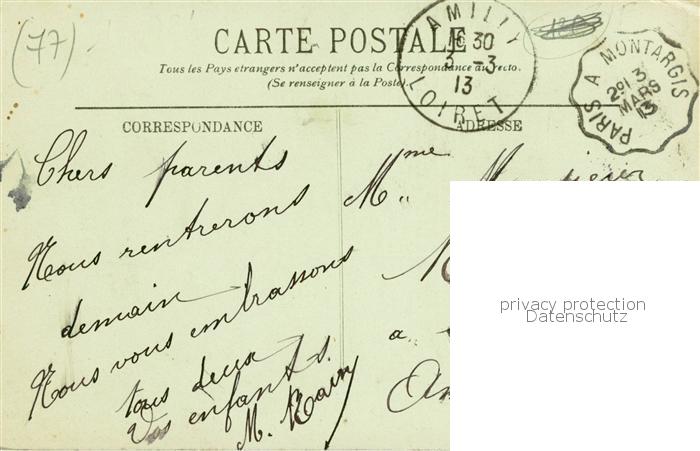 (77)
CARTE POSTALE
Tous les Pays etrangers n'acceptent pas la Correspondance au recto.
(Se renseigner à la Poste).
AMILLY
16 30
3 -3
13
LOIRET
PARIS A MONTARGIS
2º1 3
MARS
13
CORRESPONDANCE
ADRESSE
Chers parents
Nous rentrerons
demain
Nous vous embrassons
tous deux
Vos enfants.
M.
Mme
à
privacy protection
Datenschutz